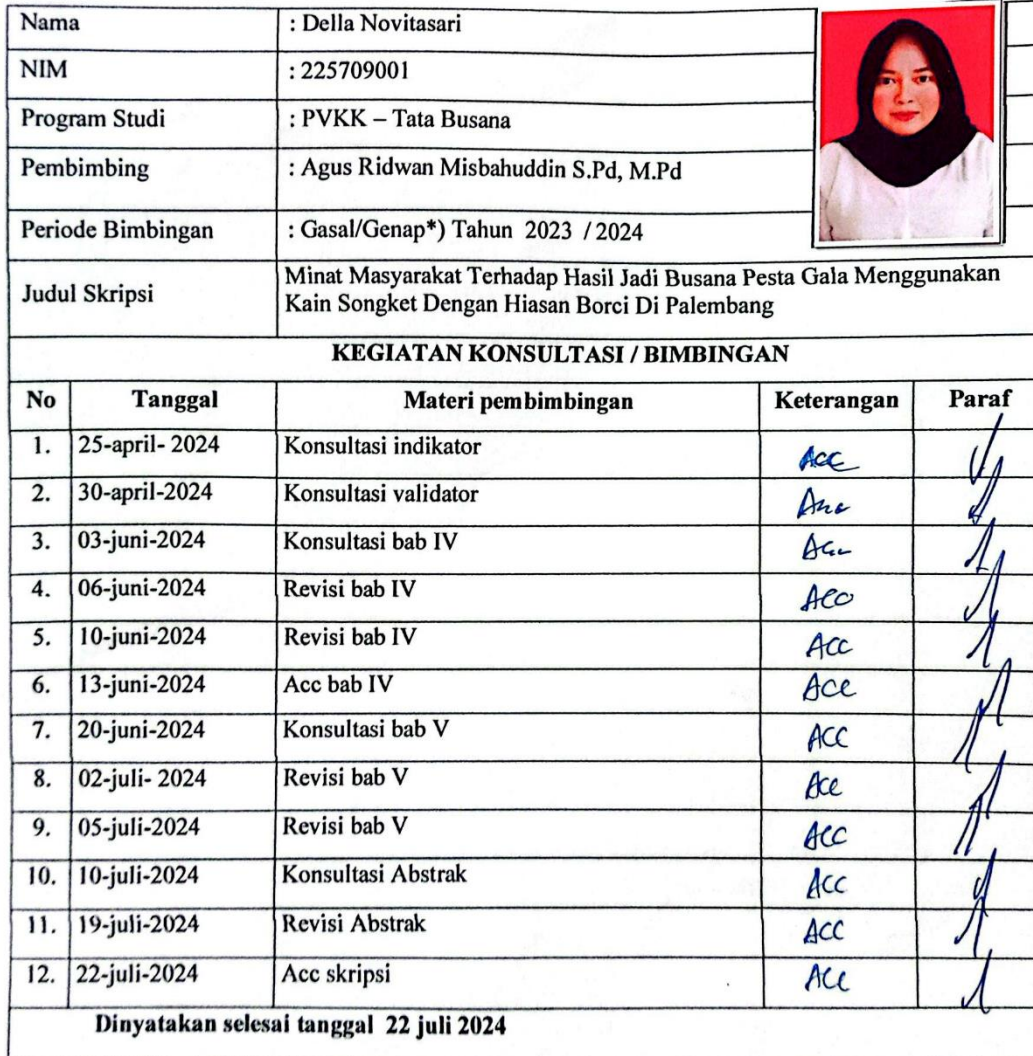 Nama : Della Novitasari
NIM : 225709001
Program Studi : PVKK – Tata Busana
Pembimbing : Agus Ridwan Misbahuddin S.Pd, M.Pd
Periode Bimbingan : Gasal/Genap*) Tahun 2023 / 2024
Judul Skripsi Minat Masyarakat Terhadap Hasil Jadi Busana Pesta Gala Menggunakan
Kain Songket Dengan Hiasan Borci Di Palembang
KEGIATAN KONSULTASI / BIMBINGAN
No Tanggal Materi pembimbingan Keterangan Paraf
1. 25-april- 2024 Konsultasi indikator Acc
2. 30-april-2024 Konsultasi validator
3. 03-juni-2024 Konsultasi bab IV Acc
4. 06-juni-2024 Revisi bab IV Acc
5. 10-juni-2024 Revisi bab IV Acc
6. 13-juni-2024 Acc bab IV Acc
7. 20-juni-2024 Konsultasi bab V Acc
8. 02-juli- 2024 Revisi bab V Acc
9. 05-juli-2024 Revisi bab V Acc
10. 10-juli-2024 Konsultasi Abstrak Acc
11. 19-juli-2024 Revisi Abstrak Acc
12. 22-juli-2024 Acc skripsi Acc
Dinyatakan selesai tanggal 22 juli 2024